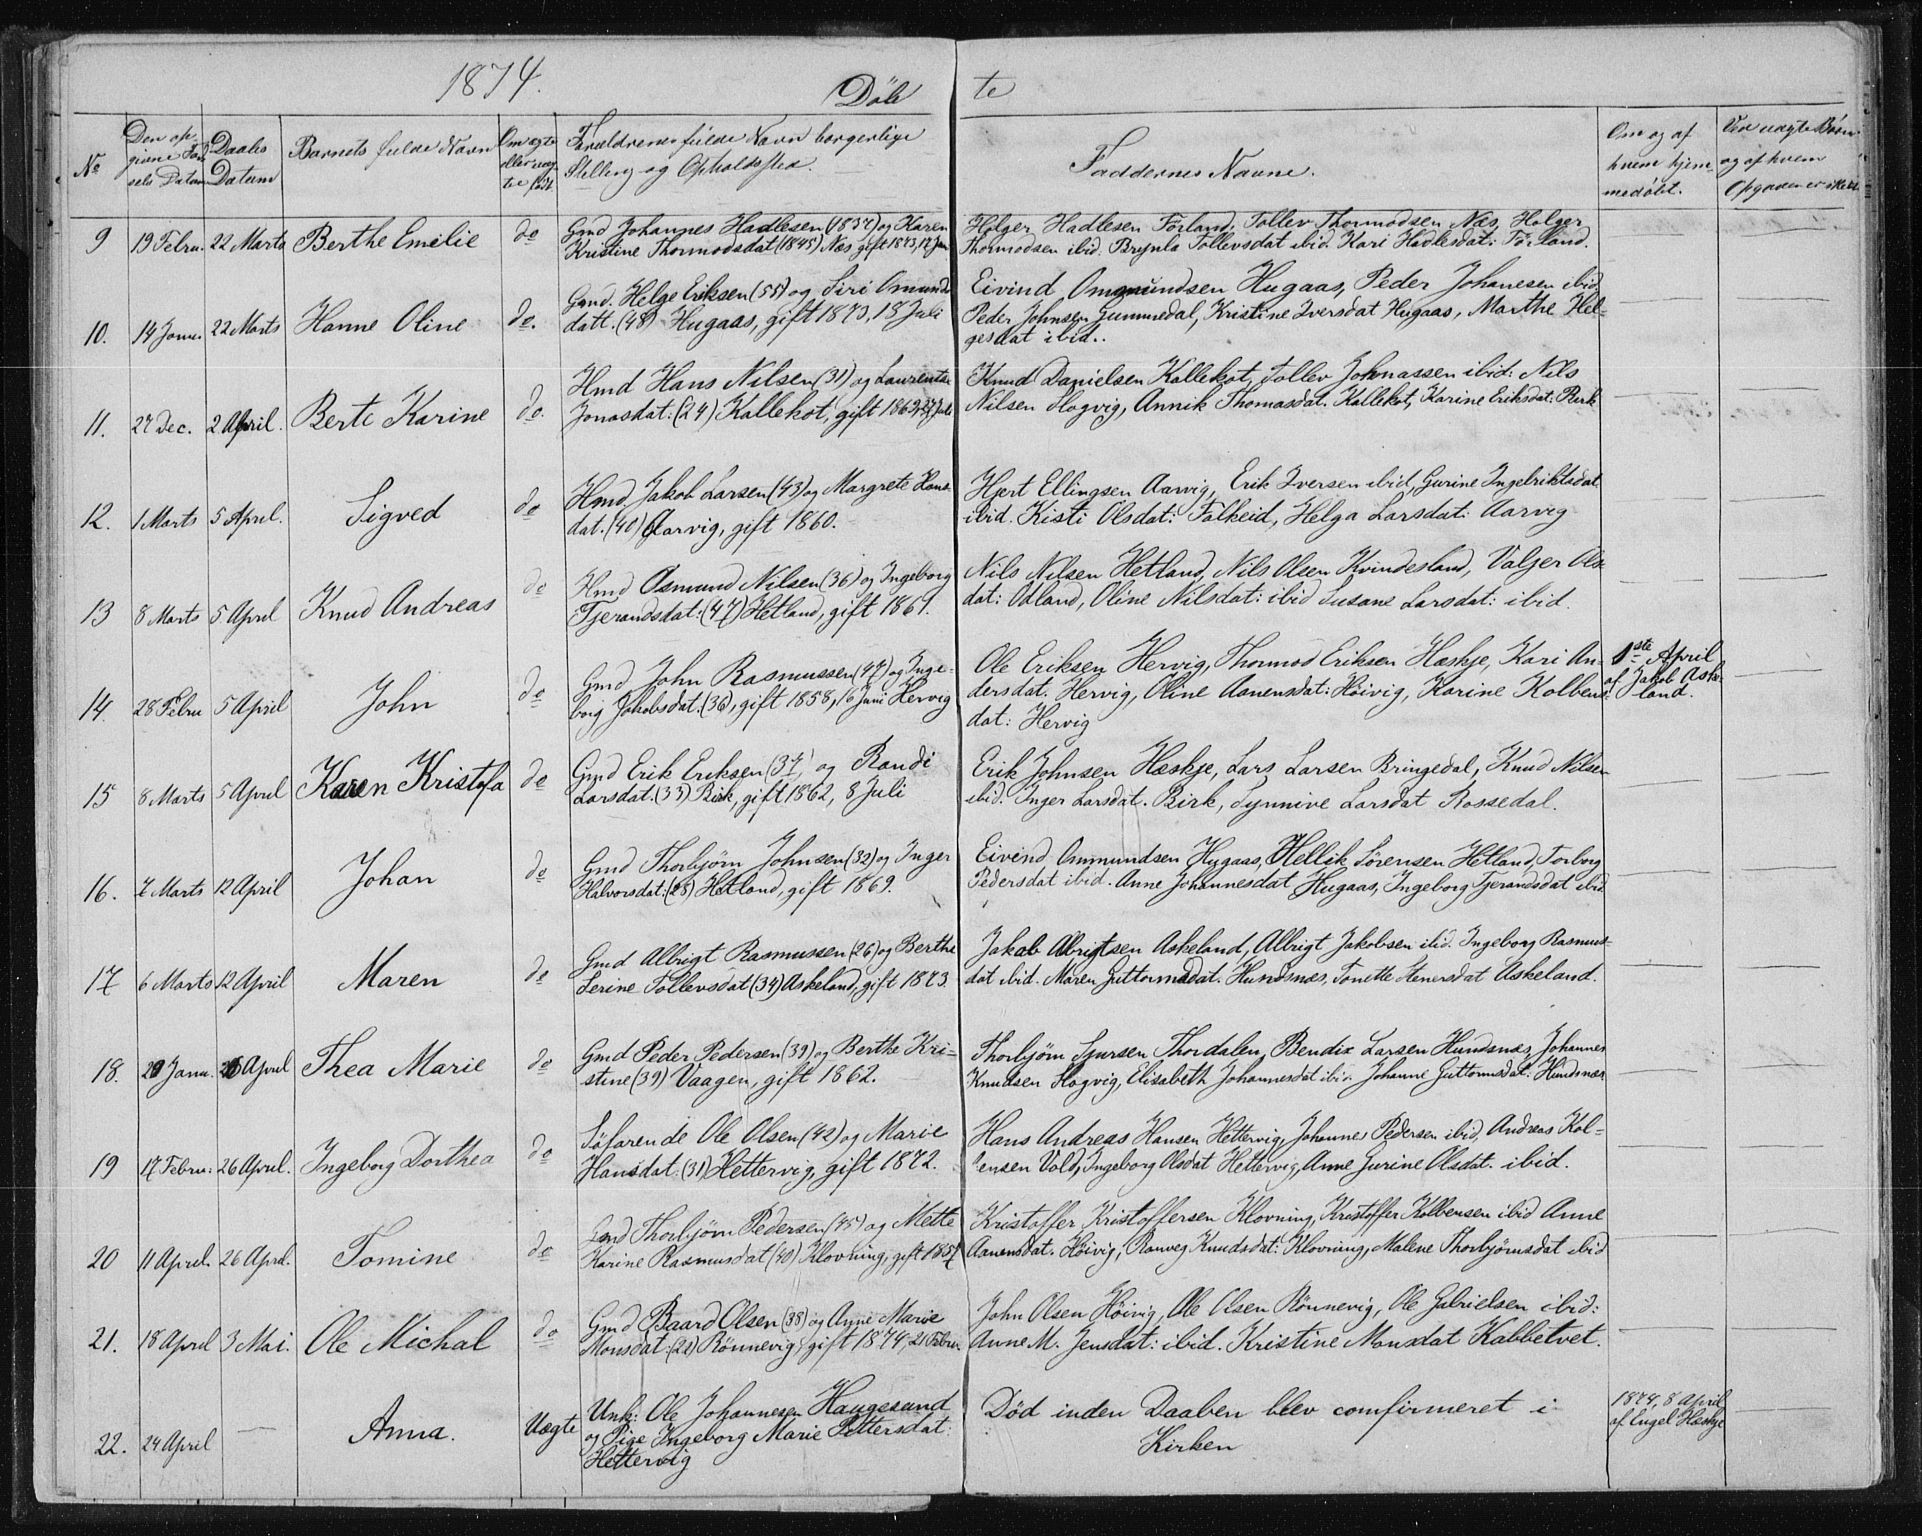 1874.
Döbte
No
Den opgivne Fødsels Datum
Daabs Datum
Barnets fulde Navn
Om ægte eller uægte født
Forældrenes fulde Navn borgerlige Stelling og Opholdssted
Faddernes Navne.
Om og af hvem hjemmedøbt.
Ved uægte Børn og af hvem Opgaven er skeet
9 19 Febru. 22 Marts Berthe Emilie do Gmd Johannes Hadlesen (1837) og Karen
Kristine Thormodsdat (1845) Næs gift 1873, 17 Juni
Holger Hadlesen Förland, Tollev Thormodsen Næs, Holger
Thormodsen ibid. Brynla Tollevsdat ibid. Kari Hadlesdat: Förland.
10. 14 Janu. 22 Marts Hanne Oline do. Gmd. Helge Eriksen (55) og Siri Omunds
datt. (48) Hugaas, gift 1873, 18 Juli
Eivind Ommundsen Hugaas, Peder Johanesen ibid
Peder Johnsen Gummedal, Kristine Iversdat Hugaas, Marthe Hel-
gesdat ibid..
11. 27 Dec. 2 April. Berte Karine do. Hmd Hans Nilsen (31) og Laurentse
Jonasdat: (24) Kallekot, gift 1869, 27 Juli
Knud Danielsen Kallekot, Tollev Johnassen ibid. Nils
Nilsen Slogvig, Annik Thomasdat. Kallekot, Karine Eriksdat: Birk
12. 1 Marts 5 April. Sigved do Hmd Jakob Larsen (43) og Margrete Hans
dat. (40) Aarvig, gift 1860.
Hjert Ellingsen Aarvig, Erik Iversen ibid, Gurine Ingebriktsdat.
ibid. Kisti Olsdat: Falkeid, Helga Larsdat: Aarvig
13 8 Marts 5 April Knud Andreas do Hmd Osmund Nilsen (36) og Ingeborg
Tjerandsdat: (47) Hetland, gift 1861.
Nils Nilsen Hetland, Nils Olsen Kvindesland, Valjer Ols-
dat: Odland, Oline Nilsdat: ibid Susane Larsdat: ibid.
14. 28 Febru 5 April John do Gmd John Rasmussen (47) og Inge-
borg Jakobsdat. (36), gift 1858, 16 Juni Hervig
Ole Eriksen Hervig, Thormod Eriksen Hæskje, Kari An-
dersdat. Hervig, Oline Aanensdat: Höivig, Karine Kolbens
dat: Hervig
1ste April
af Jakob Aske-
land.
15 8 Marts 5 April Karen Kristofa do Gmd Erik Eriksen (37) og Randi
Larsdat. (33) Birk, gift 1862, 8 Juli
Erik Johnsen Hæskje, Lars Larsen Bringedal, Knud Nilsen
ibid. Inger Larsdat. Birk, Synnive Larsdat Rossedal.
16. 7 Marts 12 April Johan do Gmd Thorbjörn Johnsen (32) og Inger
Halvorsdat: (28) Hetland, gift 1869.
Eivind Ommundsen Hugaas, Hellik Sörensen Hetland, Torborg
Pedersdat ibid. Anne Johannesdat Hugaas, Ingeborg Tjerandsdat ibid
17 6 Marts 12 April Maren do Gmd Albrigt Rasmussen (26) og Berthe
Serine Tollevsdat (34) Askeland, gift 1873.
Jakob Albrigtsen Askeland, Albrigt Jakobsen ibid. Ingeborg Rasmus-
dat ibid. Maren Guttormsdat. Hundsnæs, Tonette Stenersdat Askeland.
18. 29 Janu. 26 April Thea Marie do Gmd Peder Pedersen (39) og Berthe Kri-
stine (39) Vaagen, gift 1862.
Thorbjörn Sjursen Thordalen, Bendix Larsen Hundsnæs, Johannes
Knudsen Slogvig, Elisabeth Johannesdat ibid. Johanne Guttormsdat: Hundsnæs
19 17 Febru: 26 April. Ingeborg Dorthea do Söfarende Ole Olsen (42) og Marie
Hansdat. (31) Hettervig, gift 1872.
Hans Andreas Hansen Hettervig, Johannes Pedersen ibid, Andreas Kol-
bensen Vold, Ingeborg Olsdat Hettervig, Anne Gurine Olsdat. ibid.
20 11 April. 26 April. Tomine do Gmd Thorbjörn Pedersen (45) og Mette
Karine Rasmusdat (40) Klovning, gift 1857
Kristoffer Kristoffersen Klovning, Kristoffer Kolbensen ibid Anne
Aanensdat. Höivig, Ranveg Knudsdat: Klovning, Malene Thorbjörnsdat ibid
21. 18 April 3 Mai. Ole Michal do Gmd Baard Olsen (38) og Anne Marie
Monsdat: (22) Rönnevig, gift 1874, 21 Febru.
John Olsen Höivig, Ole Olsen Rönnevig, Ole Gabrielsen ibid:
Anne M. Jensdat: ibid. Kristine Monsdat Kabbetvet.
22. 24 April — Anna. Uægte Unk: Ole Johannesen Haugesund
og Pige Ingeborg Marie Pettersdat:
Hettervig
Död inden Daaben blev comfirmeret i
Kirken
1874, 8 April
af Engel Hæskje